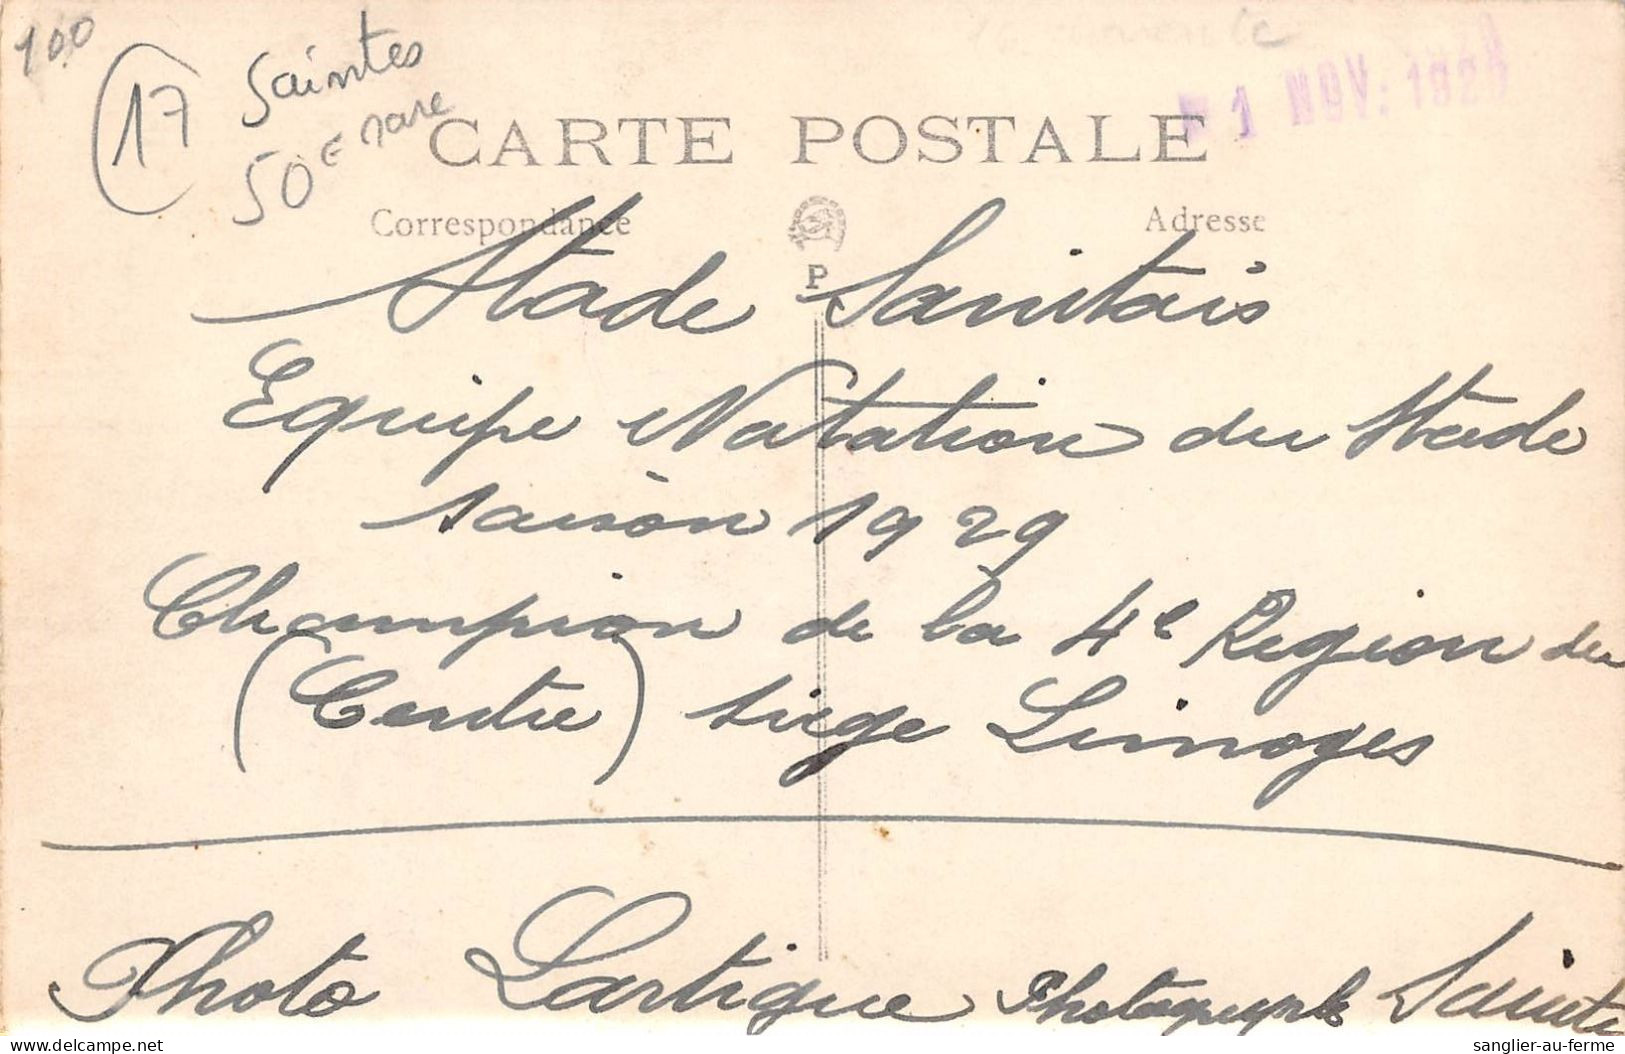 100
17
Saintes
50€ rare
1 NOV. 192
CARTE POSTALE
Correspondance
Adresse
P
Stade Sanitais
Equipe Natation du Stade
saison 1929
Champion de la 4e Region du
(Centre) siège Limoges
Photo Lartigue Photographe Sainte
sanglier-au-ferme
delcampe.net